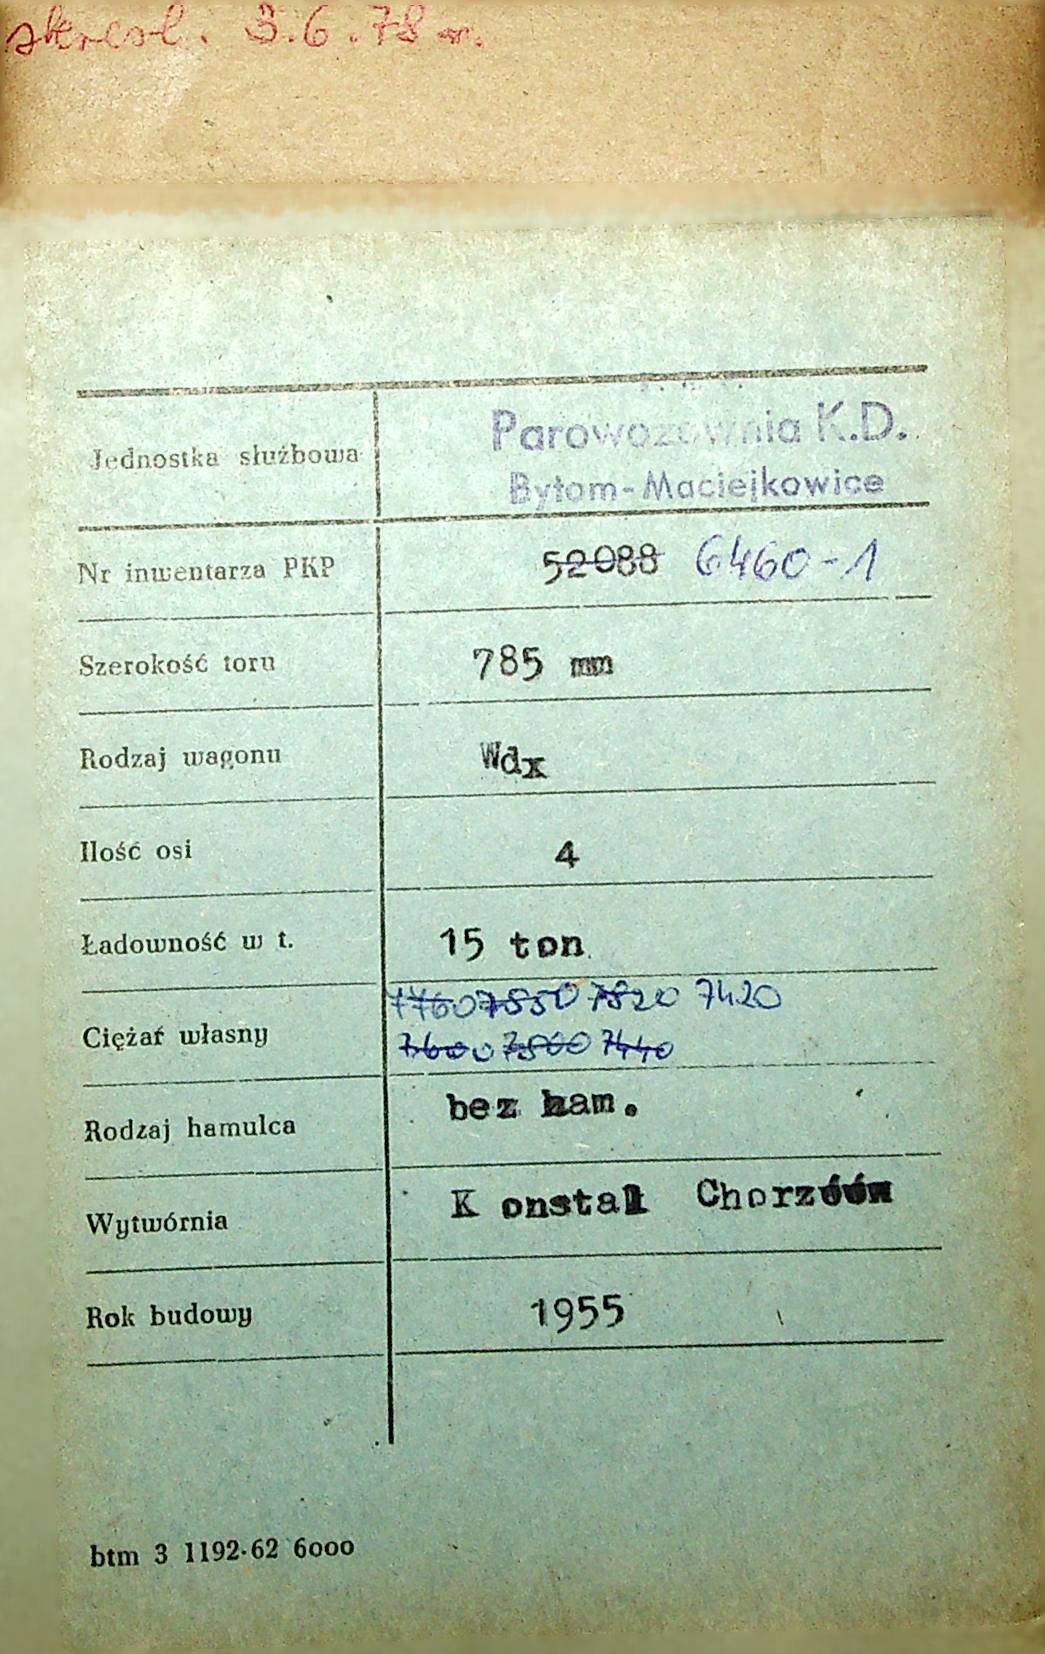 skreśl. 3.6.78 r.
Jednostka służbowa
Parowozownia K.D.
Bytom-Maciejkowice
Nr inwentarza PKP 52088 6460-1
Szerokość toru 785 mm
Rodzaj wagonu Wdx
Ilość osi 4
Ładowność w t. 15 ton
7850 7820 7420
Ciężar własny
7600 7500 7440
Rodzaj hamulca bez ham.
Wytwórnia K onstal Chorzów
Rok budowy 1955
btm 3 1192-62 6000